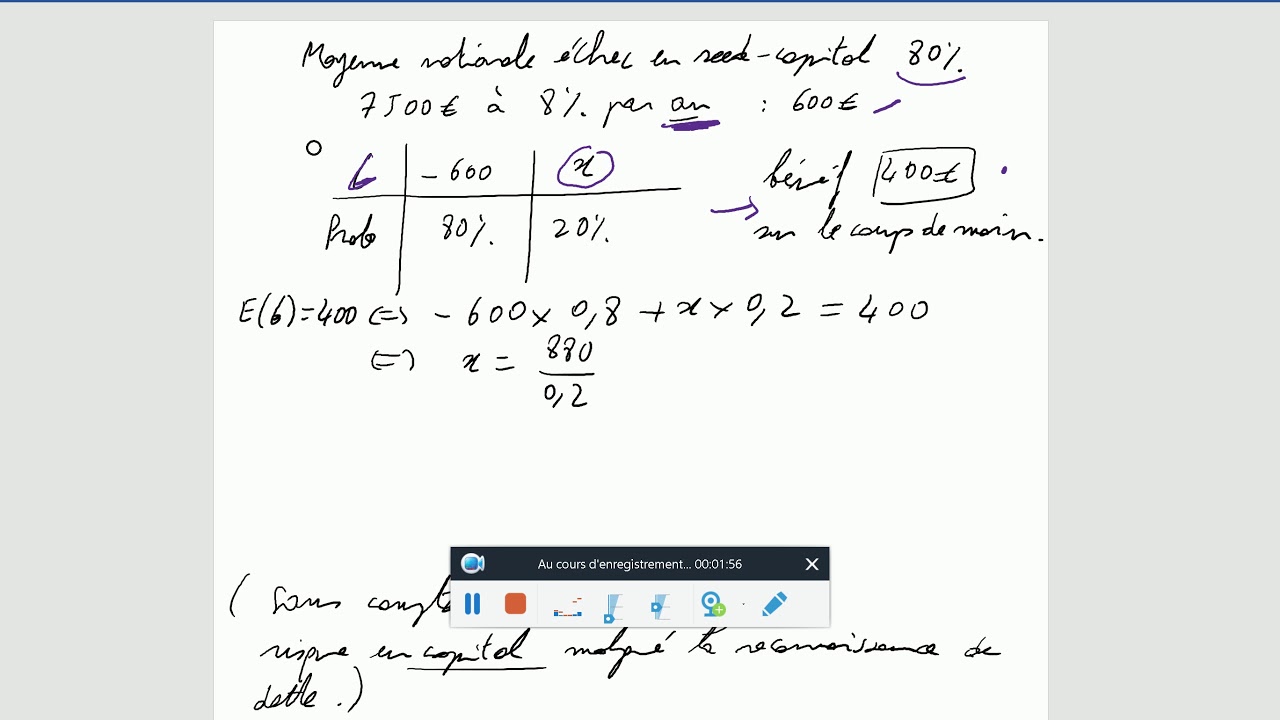 Moyenne nationale échec en seed-capital 80%
7500€ à 8% par an : 600€
b -600 x
Prob 80% 20%
bénéf 400€
sur le coup de main.
E(b)=400 <=> -600 x 0,8 + x x 0,2 = 400
<=> x = 880
0,2
Au cours d'enregistrement... 00:01:56
( Sans compte
risque en capital malgré la reconnaissance de
dette.)